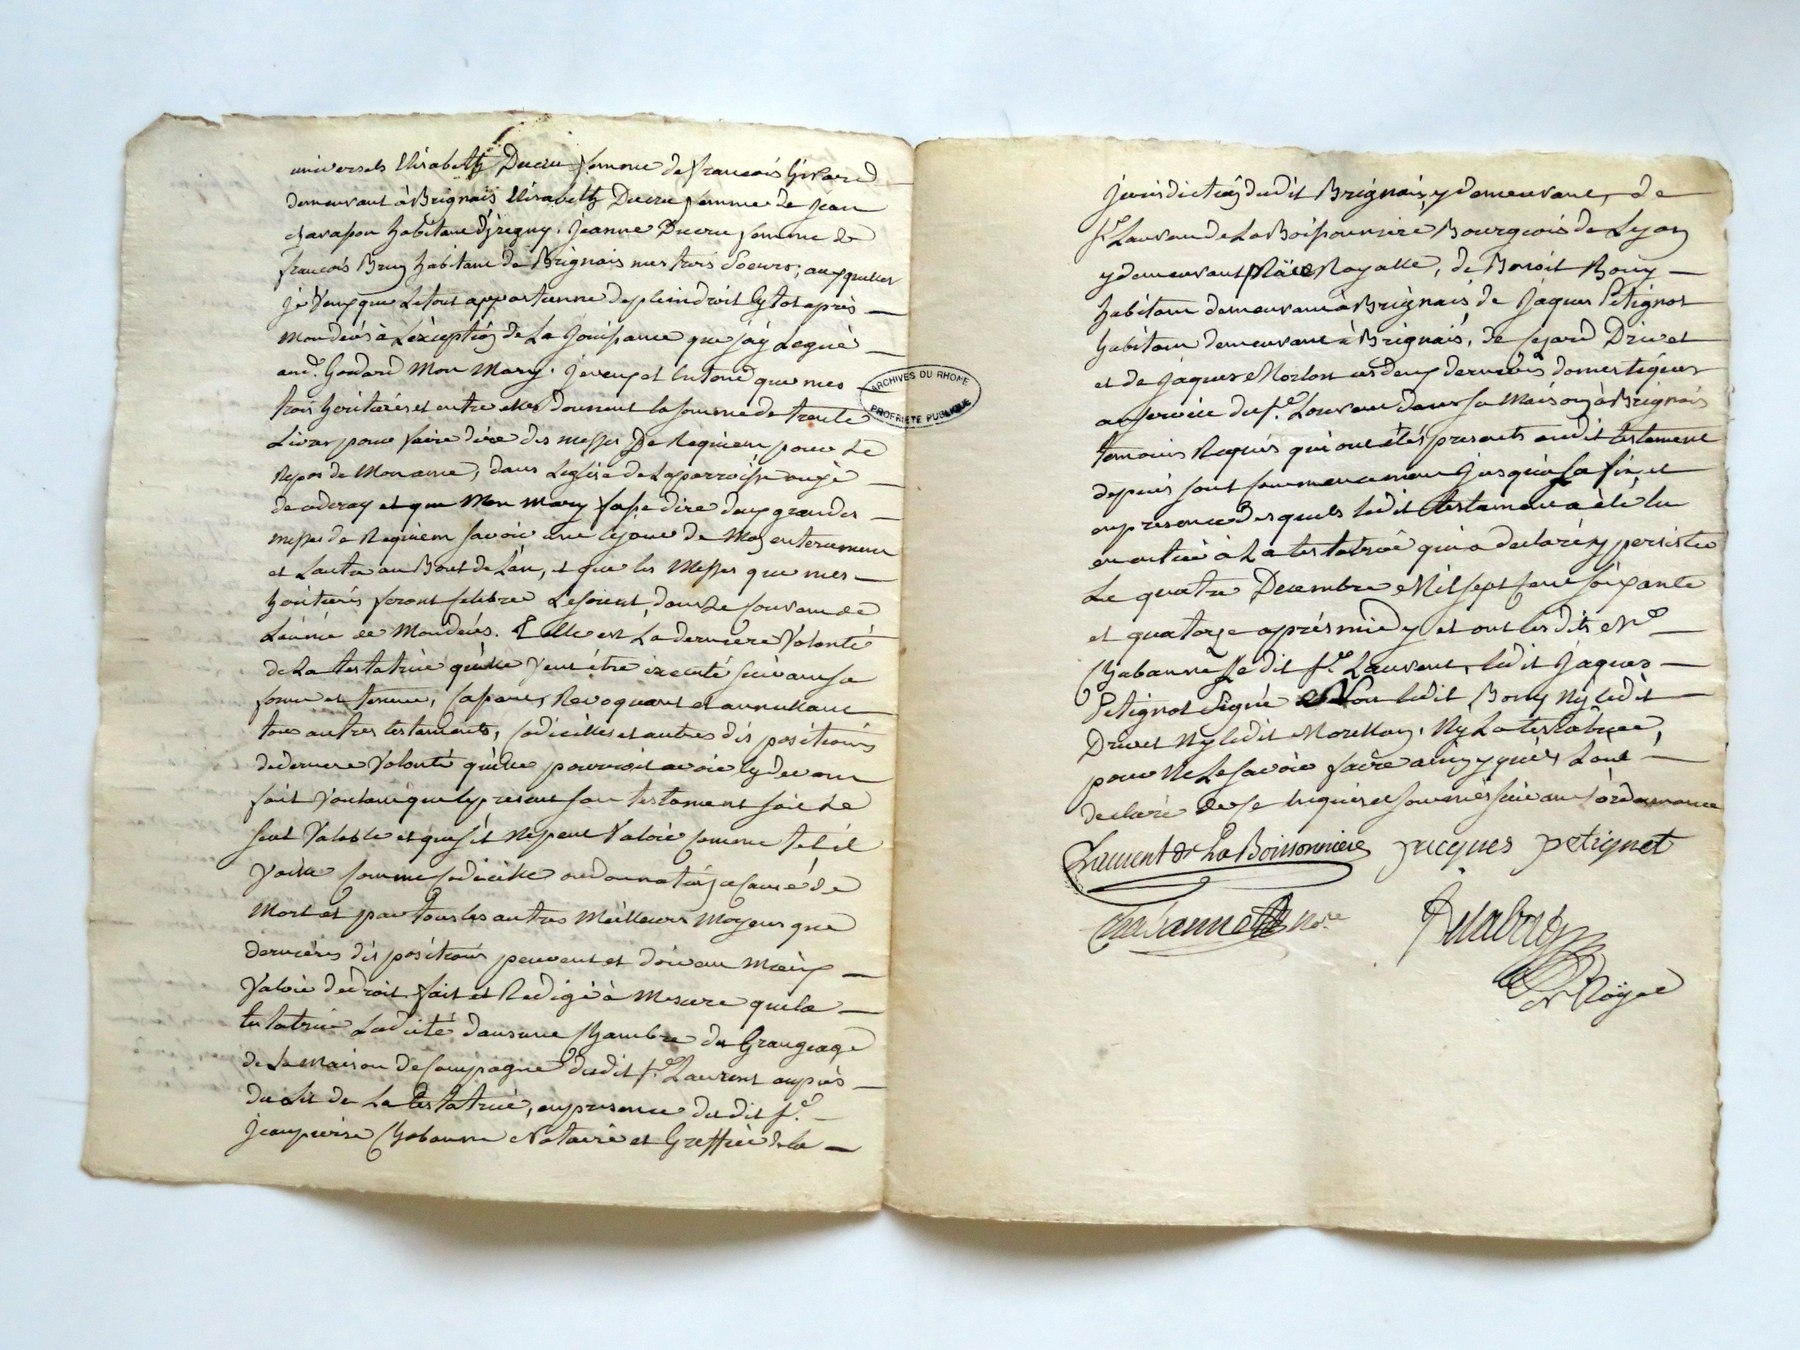 universels Elisabeth Ducru femme de francois Givard
demeurant à Brignais Elisabeth Ducru femme de jean
Charapon habitant d'jregny, jeanne Ducru femme de
francois Bruy habitant de Brignais mes trois soeurs, auxquelles
je veux que le tout appartienne de plein droit sytot après
mon decés à l'éxception de la jouissance que j'ay leguée
aud. Godard mon mary. je veux et entend que mes
trois heritierés et entre elles donnent la somme de trente
Livres pour faire dire des messes De Requiem pour Le
Repos de mon ame, dans L'eglise de la parroisse
et que Mon mary fasse dire deux grandes
messes de Requiem savoir une le jour de Mon enterrement
et L'autre au Bout de L'an, et que les Messes que mes
heritierés feront celebrer Le soient dans Le courant de
L'année de Mon decés. Telle est La derniere Volonté
de La testatrice qu'elle veut être éxecuté suivant sa
forme et teneur, Cassant, Revoquant et annullant
tous autres testaments, Codicilles et autres dispositions
de derniere Volonté qu'elle pourroit avoir cy devant
fait Voulant que le present son testament soit Le
seul Valable et que s'il ne peut Valoir comme tel il
Vaille comme Codicille ou donnation a cause de
Mort et par tous les autres Meilleurs Moyens que
dernieres dispositions peuvent et doivent Mieux
Valoir de droit. fait et Redigé à Mesure que la
testatrice L'a dicté dans une Chambre du Grangeage
de La Maison de Campagne dudit sr. Laurent auprès
du Lit de La testatrice, en presence du dit sr.
Jean pierre Chabanne Notaire et Greffier de la
ARCHIVES DU RHONE
PROPRIETE PUBLIQUE
jurisdiction dudit Brignais y demeurant, de
sr. Laurent de La Boissonniere Bourgeois de Lyon
y demeurant place Royalle, de Benoit Bouy
habitant demeurant à Brignais, de Jaques Petignot
habitant demeurant à Brignais, de Drivet
et de Jaques Morlon ces deux derniers domestiques
au service du sr. Laurent dans sa Maison à Brignais
temoins Requis qui ont étés presents audit testament
depuis sont commencement jusqu'à sa fin et
en presence desquels ledit testament a été lu
en entier à La testatrice qui a declaré y persister
Le quatre Decembre Mil sept cent soixante
et quatorze après midy et ont lesdits Me
Chabanne Ledit sr. Laurent, ledit Jaques
Petignot signé et Non ledit Bouy Ny ledit
Drivet Ny ledit Morlon, Ny La testatrice,
pour Ne Le savoir faire ainsy qu'ils L'ont
declaré de ce enquis et sommés suivant l'ordonnance
Laurent De La Boissonniere jacques petignot
Chabanne Nore